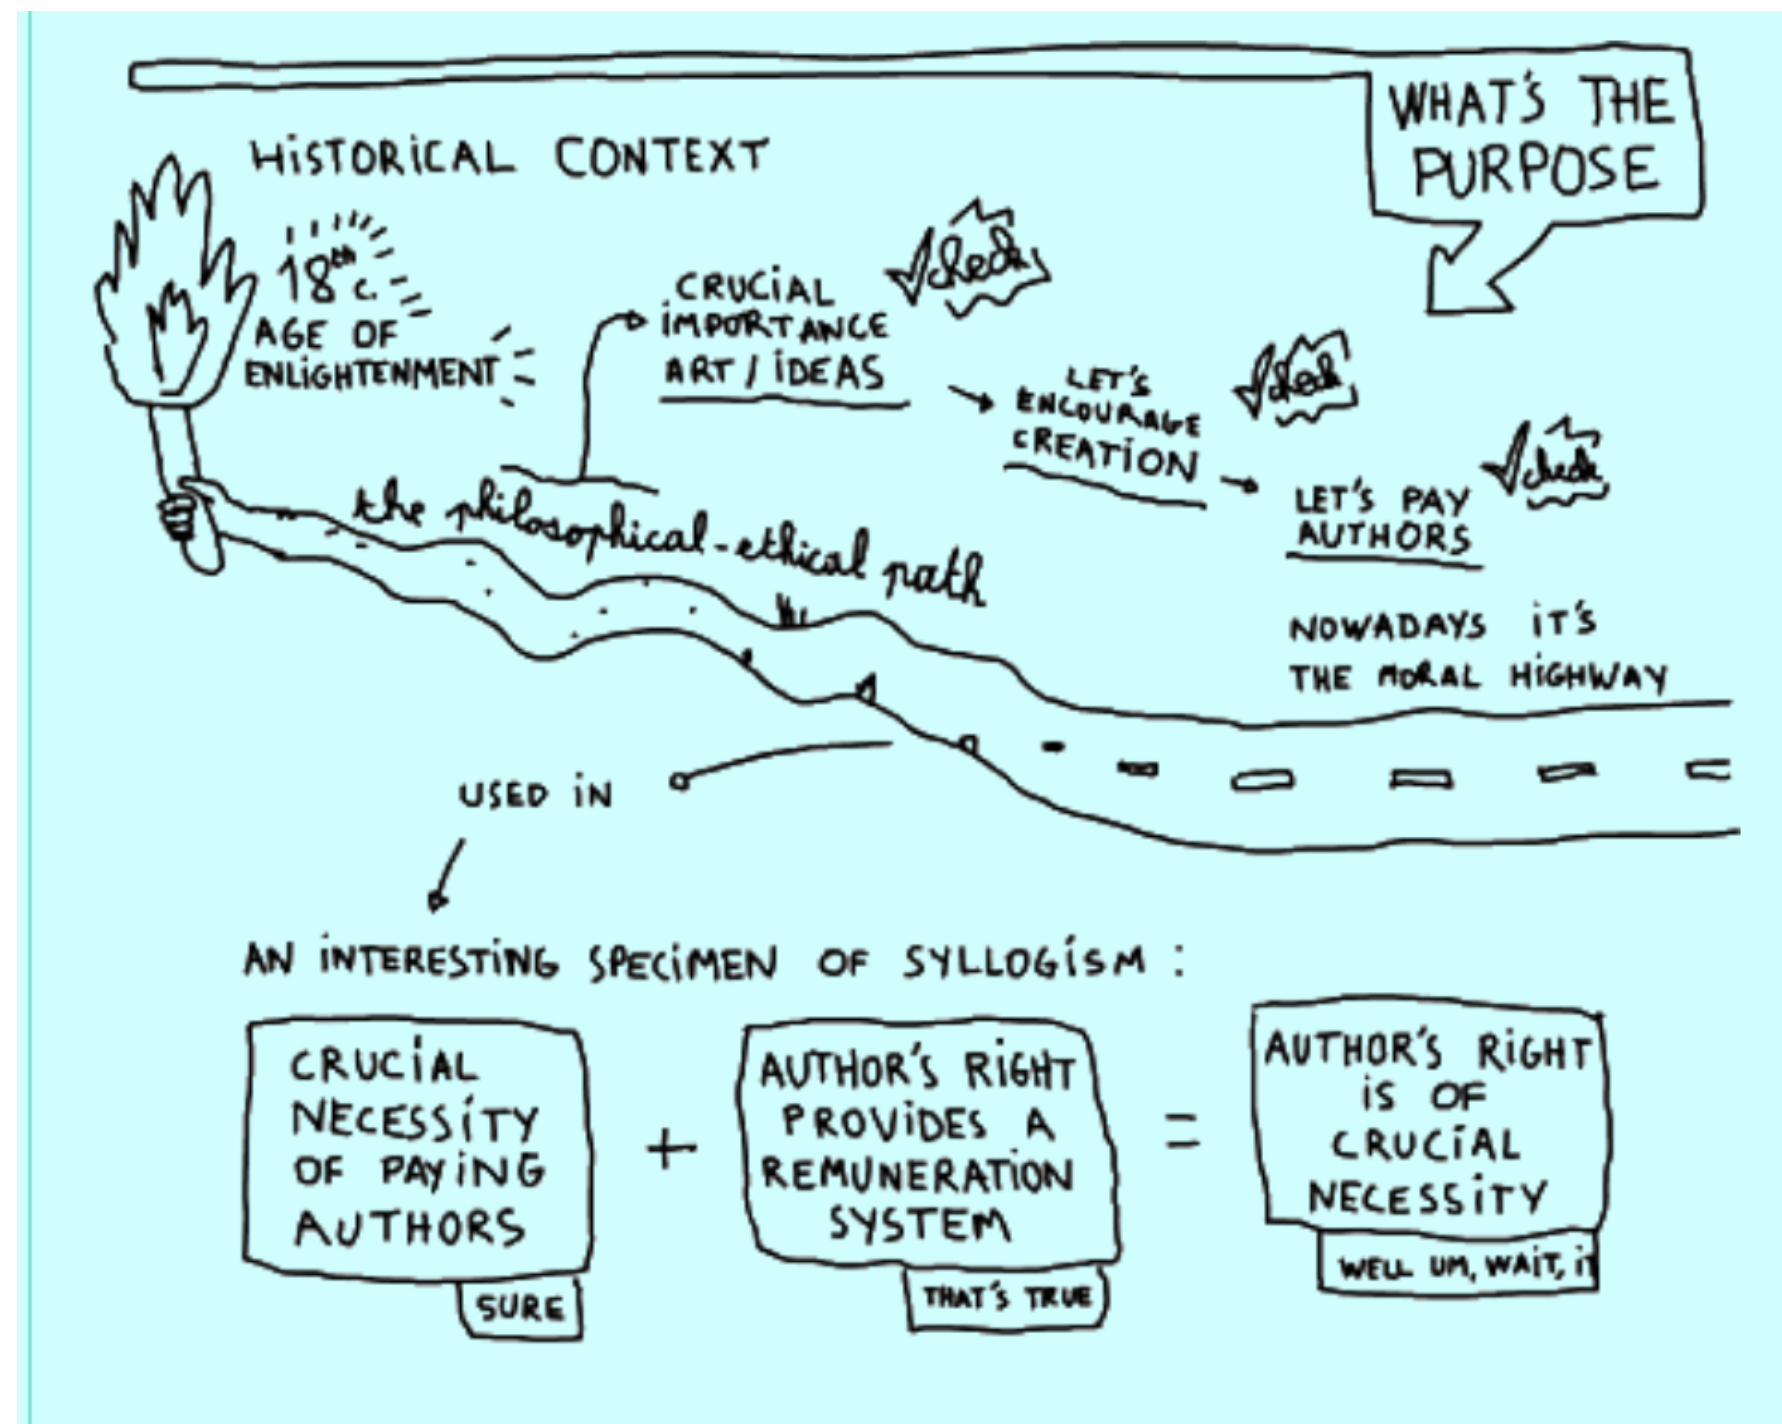 WHAT'S THE
PURPOSE
HISTORICAL CONTEXT
18th c.
AGE OF
ENLIGHTENMENT
CRUCIAL
IMPORTANCE
ART / IDEAS
check
LET'S
ENCOURAGE
CREATION
check
LET'S PAY
AUTHORS
check
the philosophical-ethical path
NOWADAYS IT'S
THE MORAL HIGHWAY
USED IN
AN INTERESTING SPECIMEN OF SYLLOGISM :
CRUCIAL
NECESSITY
OF PAYING
AUTHORS
SURE
+
AUTHOR'S RIGHT
PROVIDES A
REMUNERATION
SYSTEM
THAT'S TRUE
=
AUTHOR'S RIGHT
IS OF
CRUCIAL
NECESSITY
WELL UM, WAIT, IT